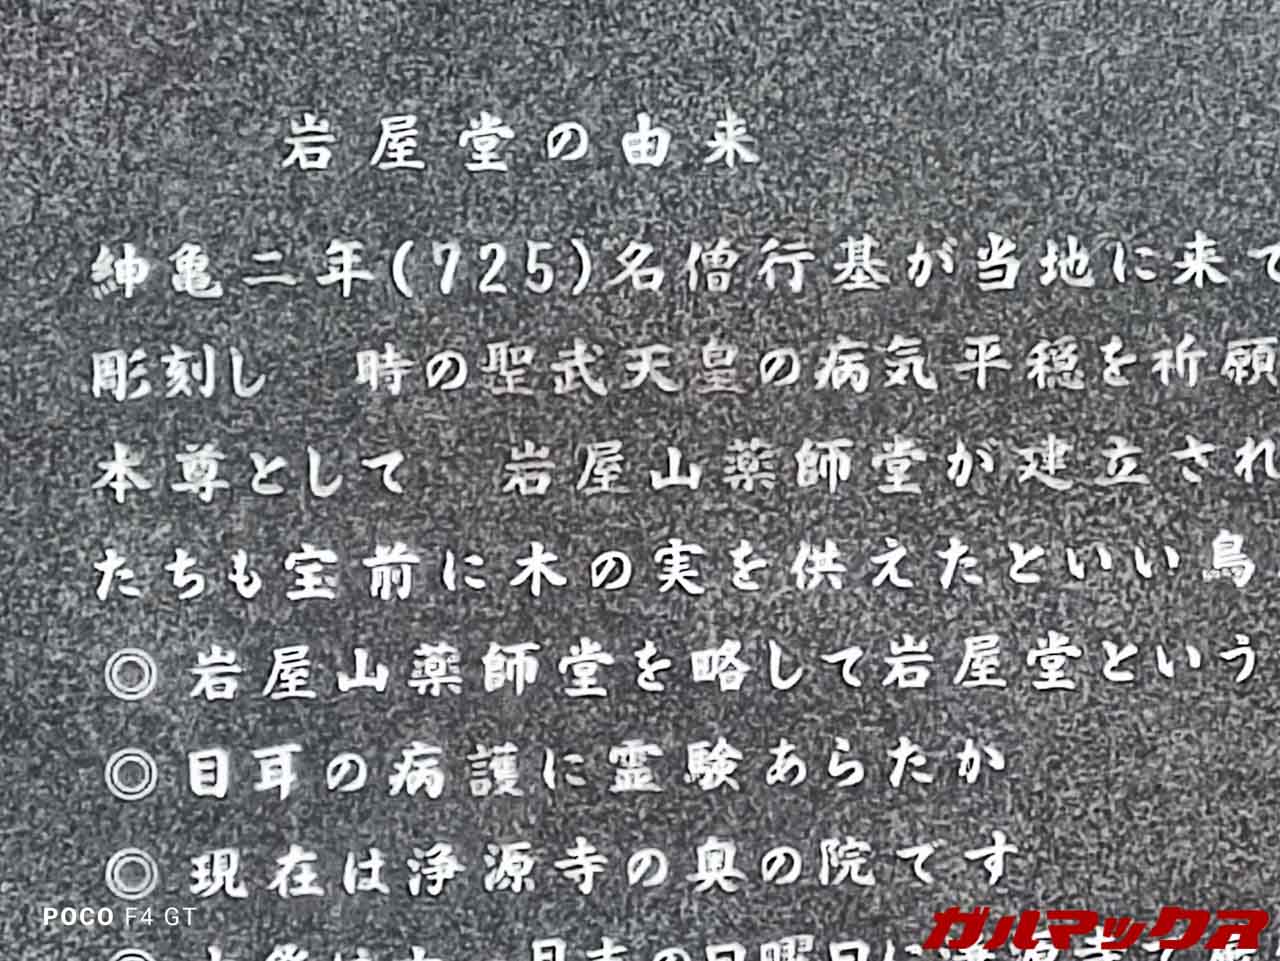 岩屋堂の由来
紳亀二年(725)名僧行基が当地に来て
彫刻し　時の聖武天皇の病気平穏を祈願
本尊として　岩屋山薬師堂が建立され
たちも宝前に木の実を供えたといい鳥
◎岩屋山薬師堂を略して岩屋堂という
◎目耳の病護に霊験あらたか
◎現在は浄源寺の奥の院です
POCO F4 GT
ガルマックス